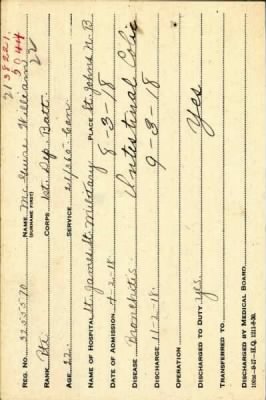 213822 1
3044
REG. NO. 3255570 NAME McGuire William
(SURNAME FIRST)
RANK Pte CORPS 1st. Dep. Batt.
AGE 22 SERVICE Can
NAME OF HOSPITAL St. James St. Military PLACE St. Johns N.B
DATE OF ADMISSION 4-2-18 8-3-18
DISEASE Bronchitis Intestinal Colic
DISCHARGE 11-2-18 9-3-18
OPERATION
DISCHARGED TO DUTY yes Yes
TRANSFERRED TO
DISCHARGED BY MEDICAL BOARD